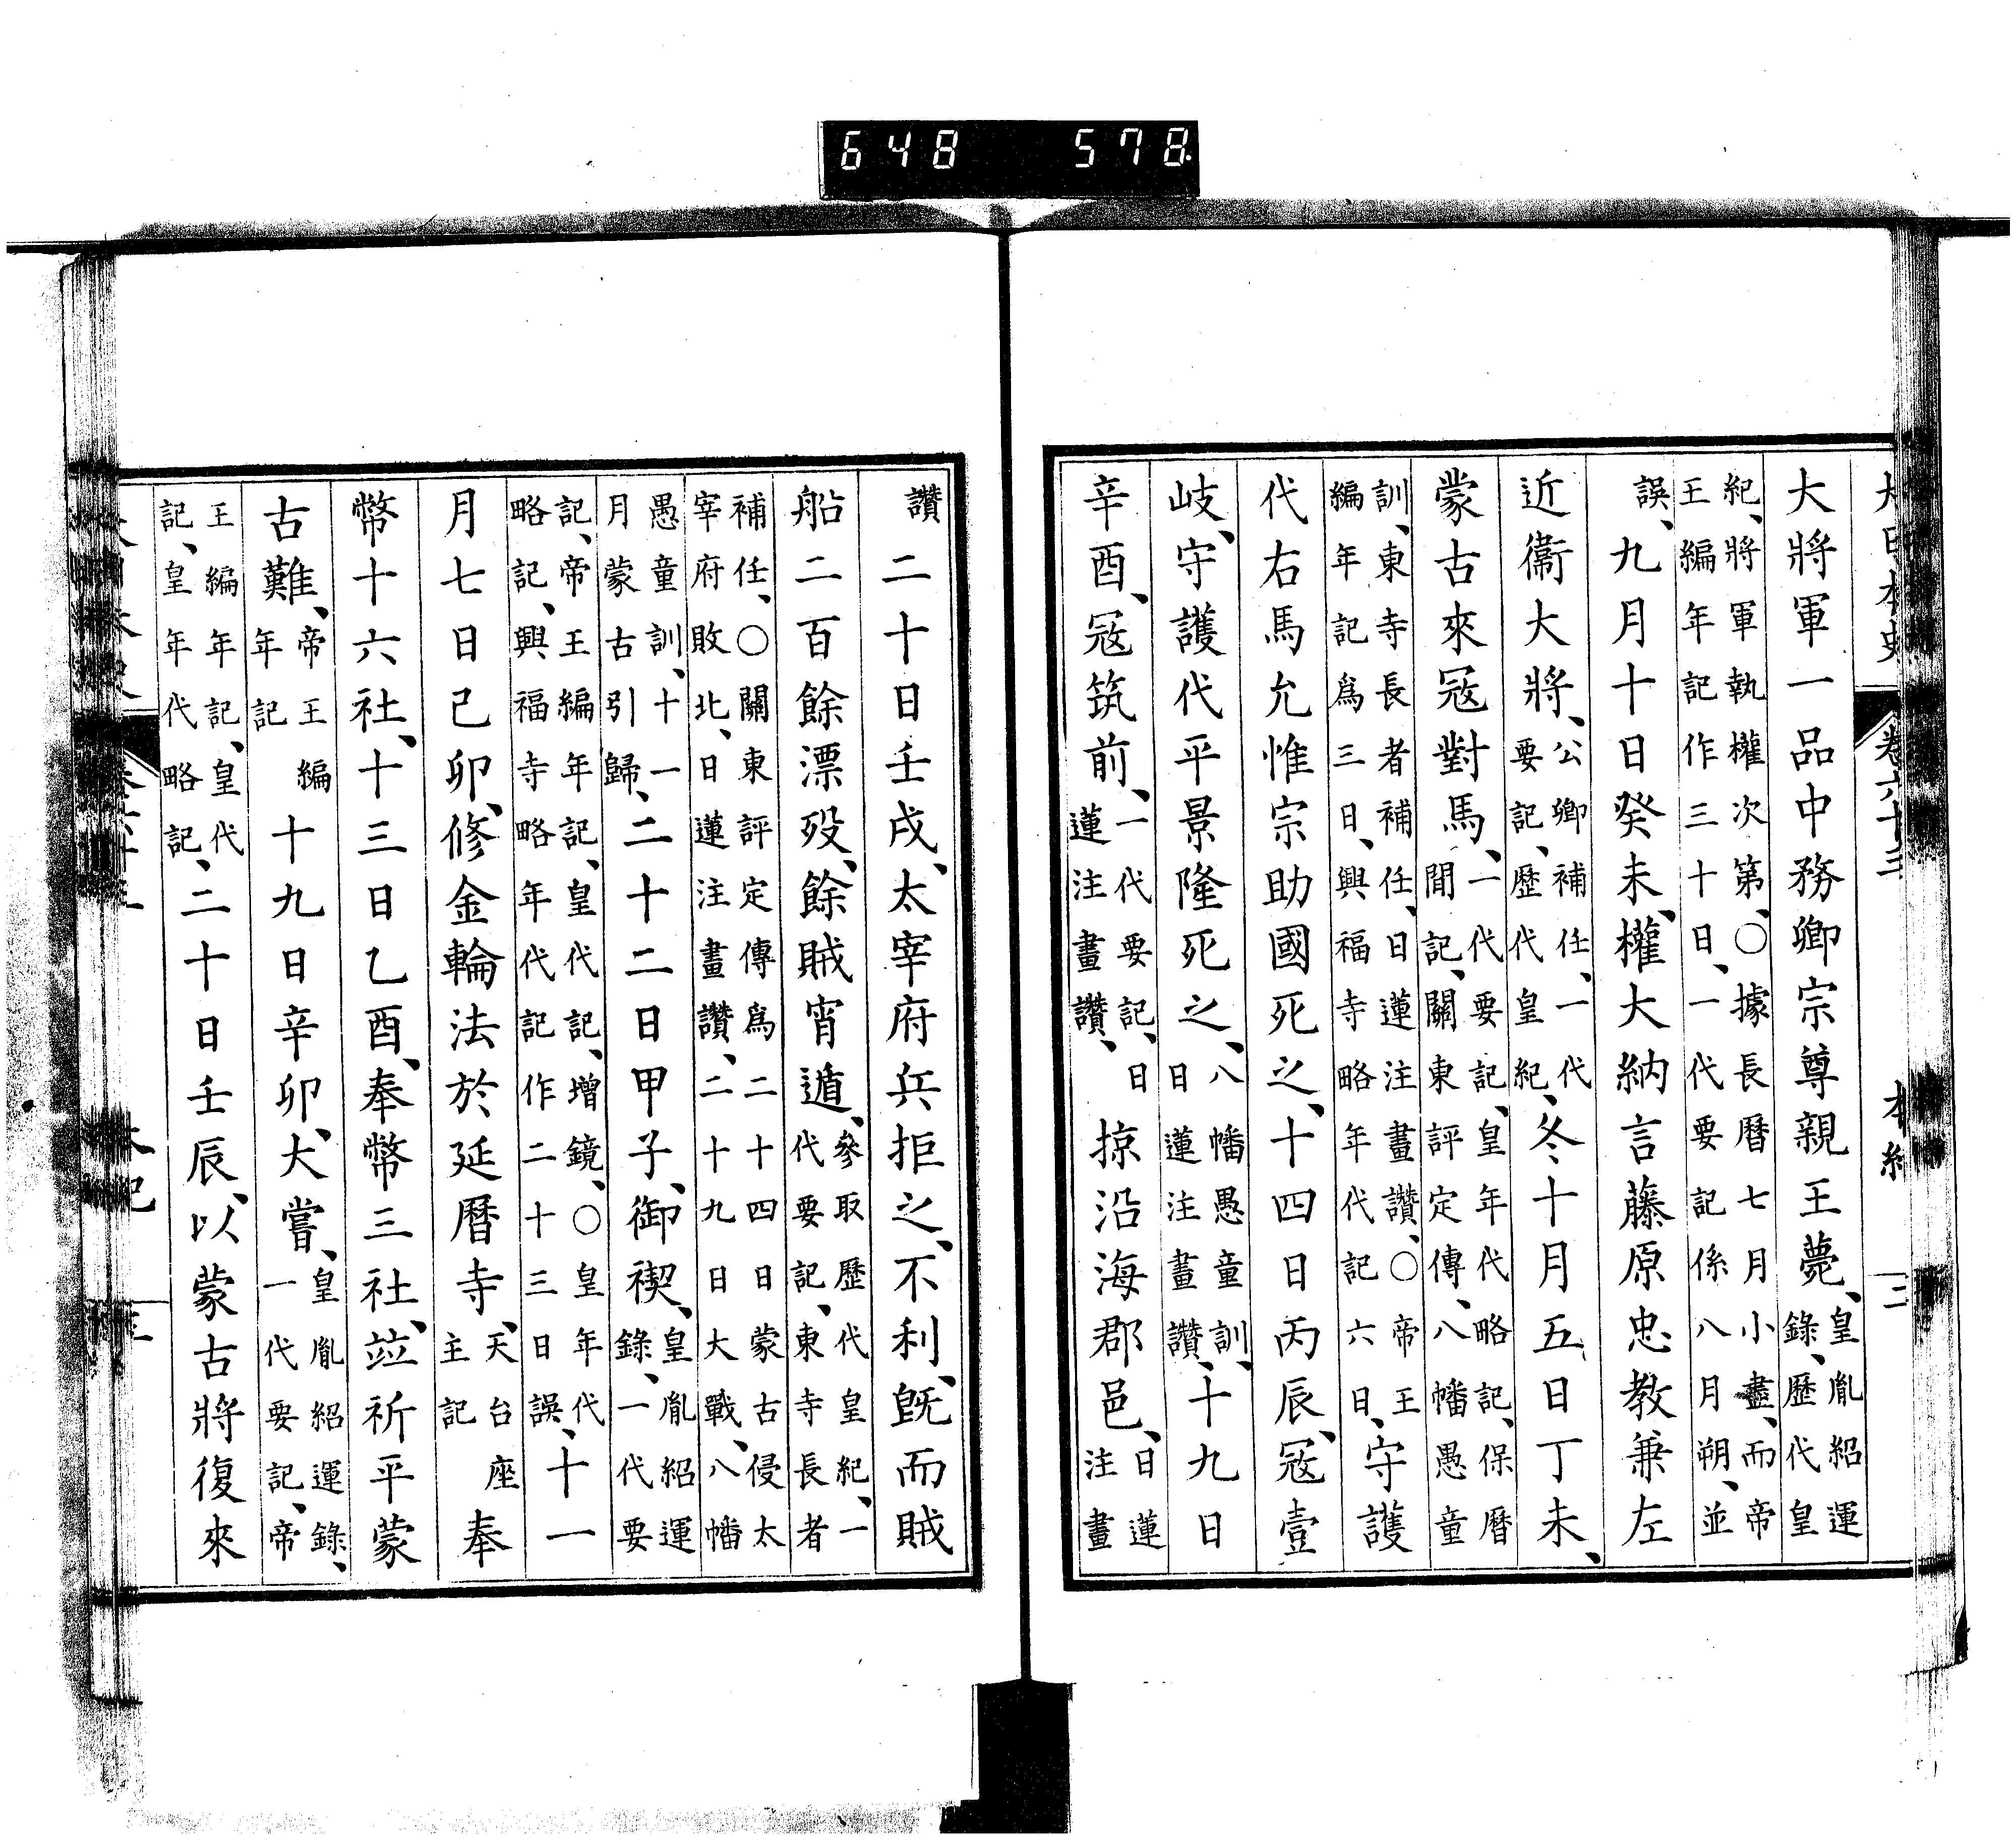 648 578
大日本史 卷六十三 本紀
大將軍一品中務卿宗尊親王薨、皇胤紹運錄、歷代皇
紀、將軍執權次第、○據長曆七月小盡、而帝王編年記作三十日、一代要記係八月朔、並
誤、九月十日癸未、權大納言藤原忠教兼左
近衞大將、公卿補任、一代要記、歷代皇紀、冬十月五日丁未、
蒙古來寇對馬、一代要記、皇年代略記、保曆間記、關東評定傳、八幡愚童
訓、東寺長者補任、日蓮注畫讚、○帝王編年記爲三日、興福寺略年代記六日、守護
代右馬允惟宗助國死之、十四日丙辰、寇壹
岐、守護代平景隆死之、八幡愚童訓、日蓮注畫讚、十九日
辛酉、寇筑前、一代要記、日蓮注畫讚、掠沿海郡邑、日蓮注畫
讚二十日壬戌、太宰府兵拒之、不利、旣而賊
船二百餘漂歿、餘賊宵遁、參取歷代皇紀、一代要記、東寺長者
補任、○關東評定傳爲二十四日蒙古侵太宰府敗北、日蓮注畫讚、二十九日大戰、八幡
愚童訓、十一月蒙古引歸、二十二日甲子、御禊、皇胤紹運錄、一代要
記、帝王編年記、皇代記、增鏡、○皇年代略記、興福寺略年代記作二十三日誤、十一
月七日己卯、修金輪法於延曆寺、天台座主記奉
幣十六社、十三日乙酉、奉幣三社、竝祈平蒙
古難、帝王編年記十九日辛卯、大嘗、皇胤紹運錄、一代要記、帝
王編年記、皇代記、皇年代略記、二十日壬辰、以蒙古將復來